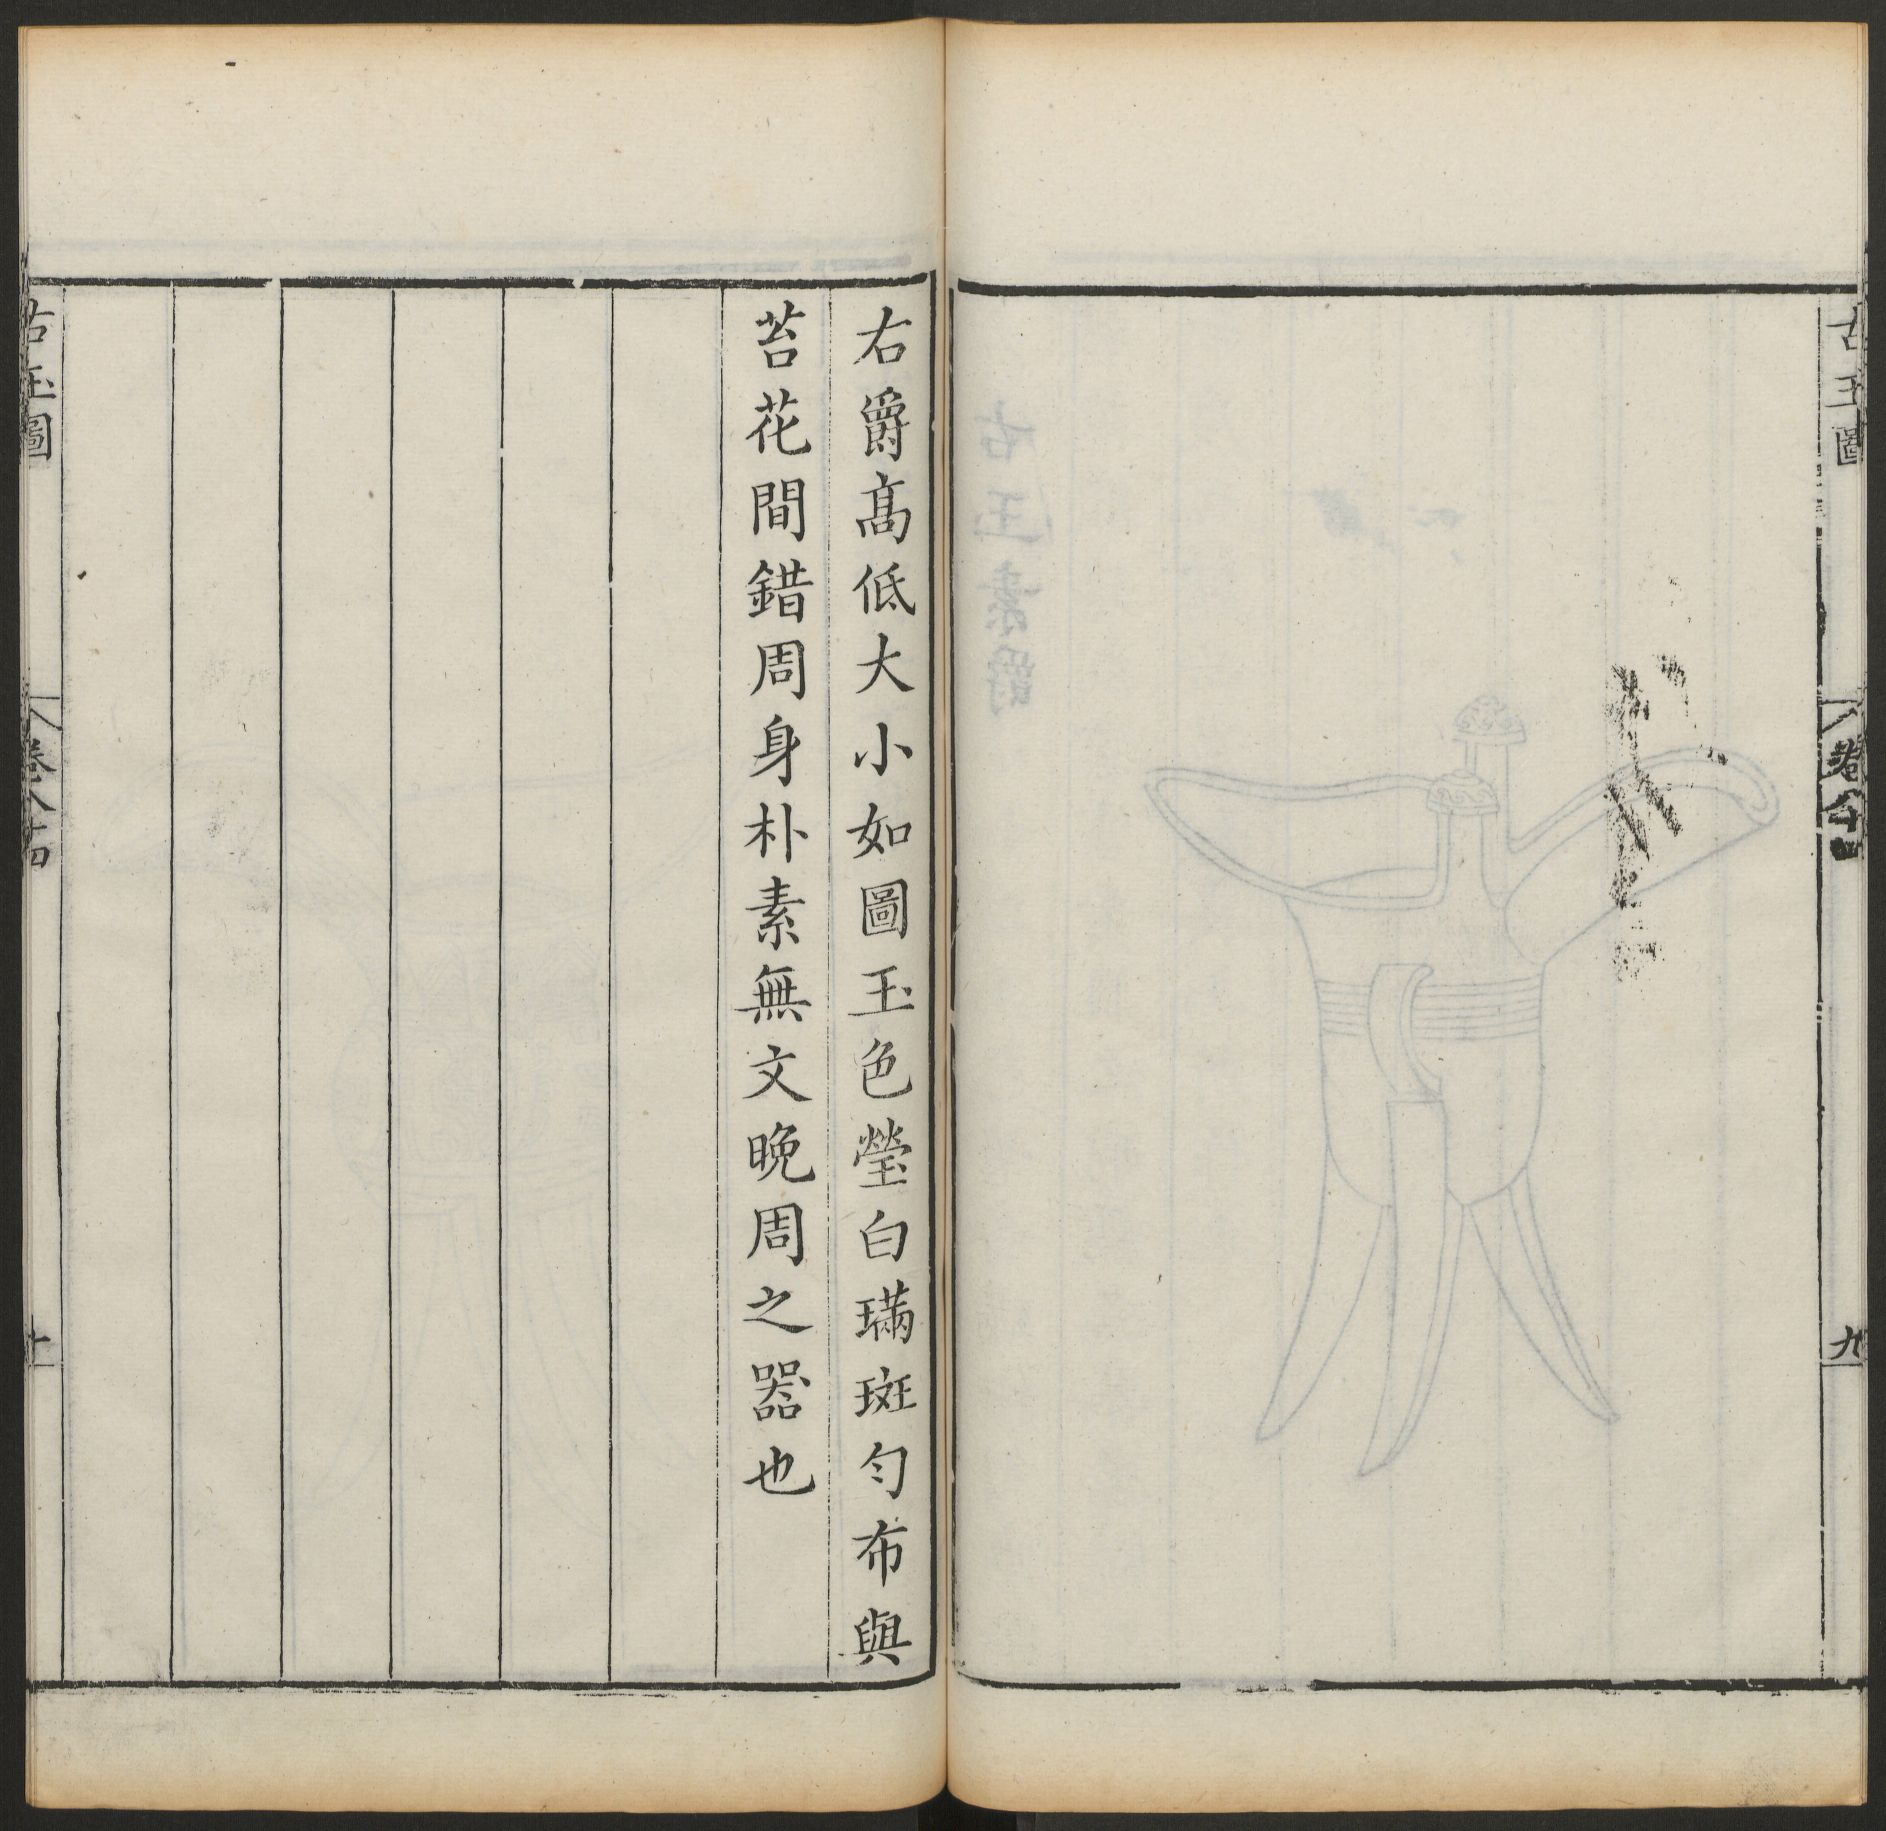 古玉圖
卷八十四
九
右爵高低大小如圖玉色瑩白璊斑勻布與
苔花間錯周身朴素無文晚周之器也
古玉圖
卷八十四
十